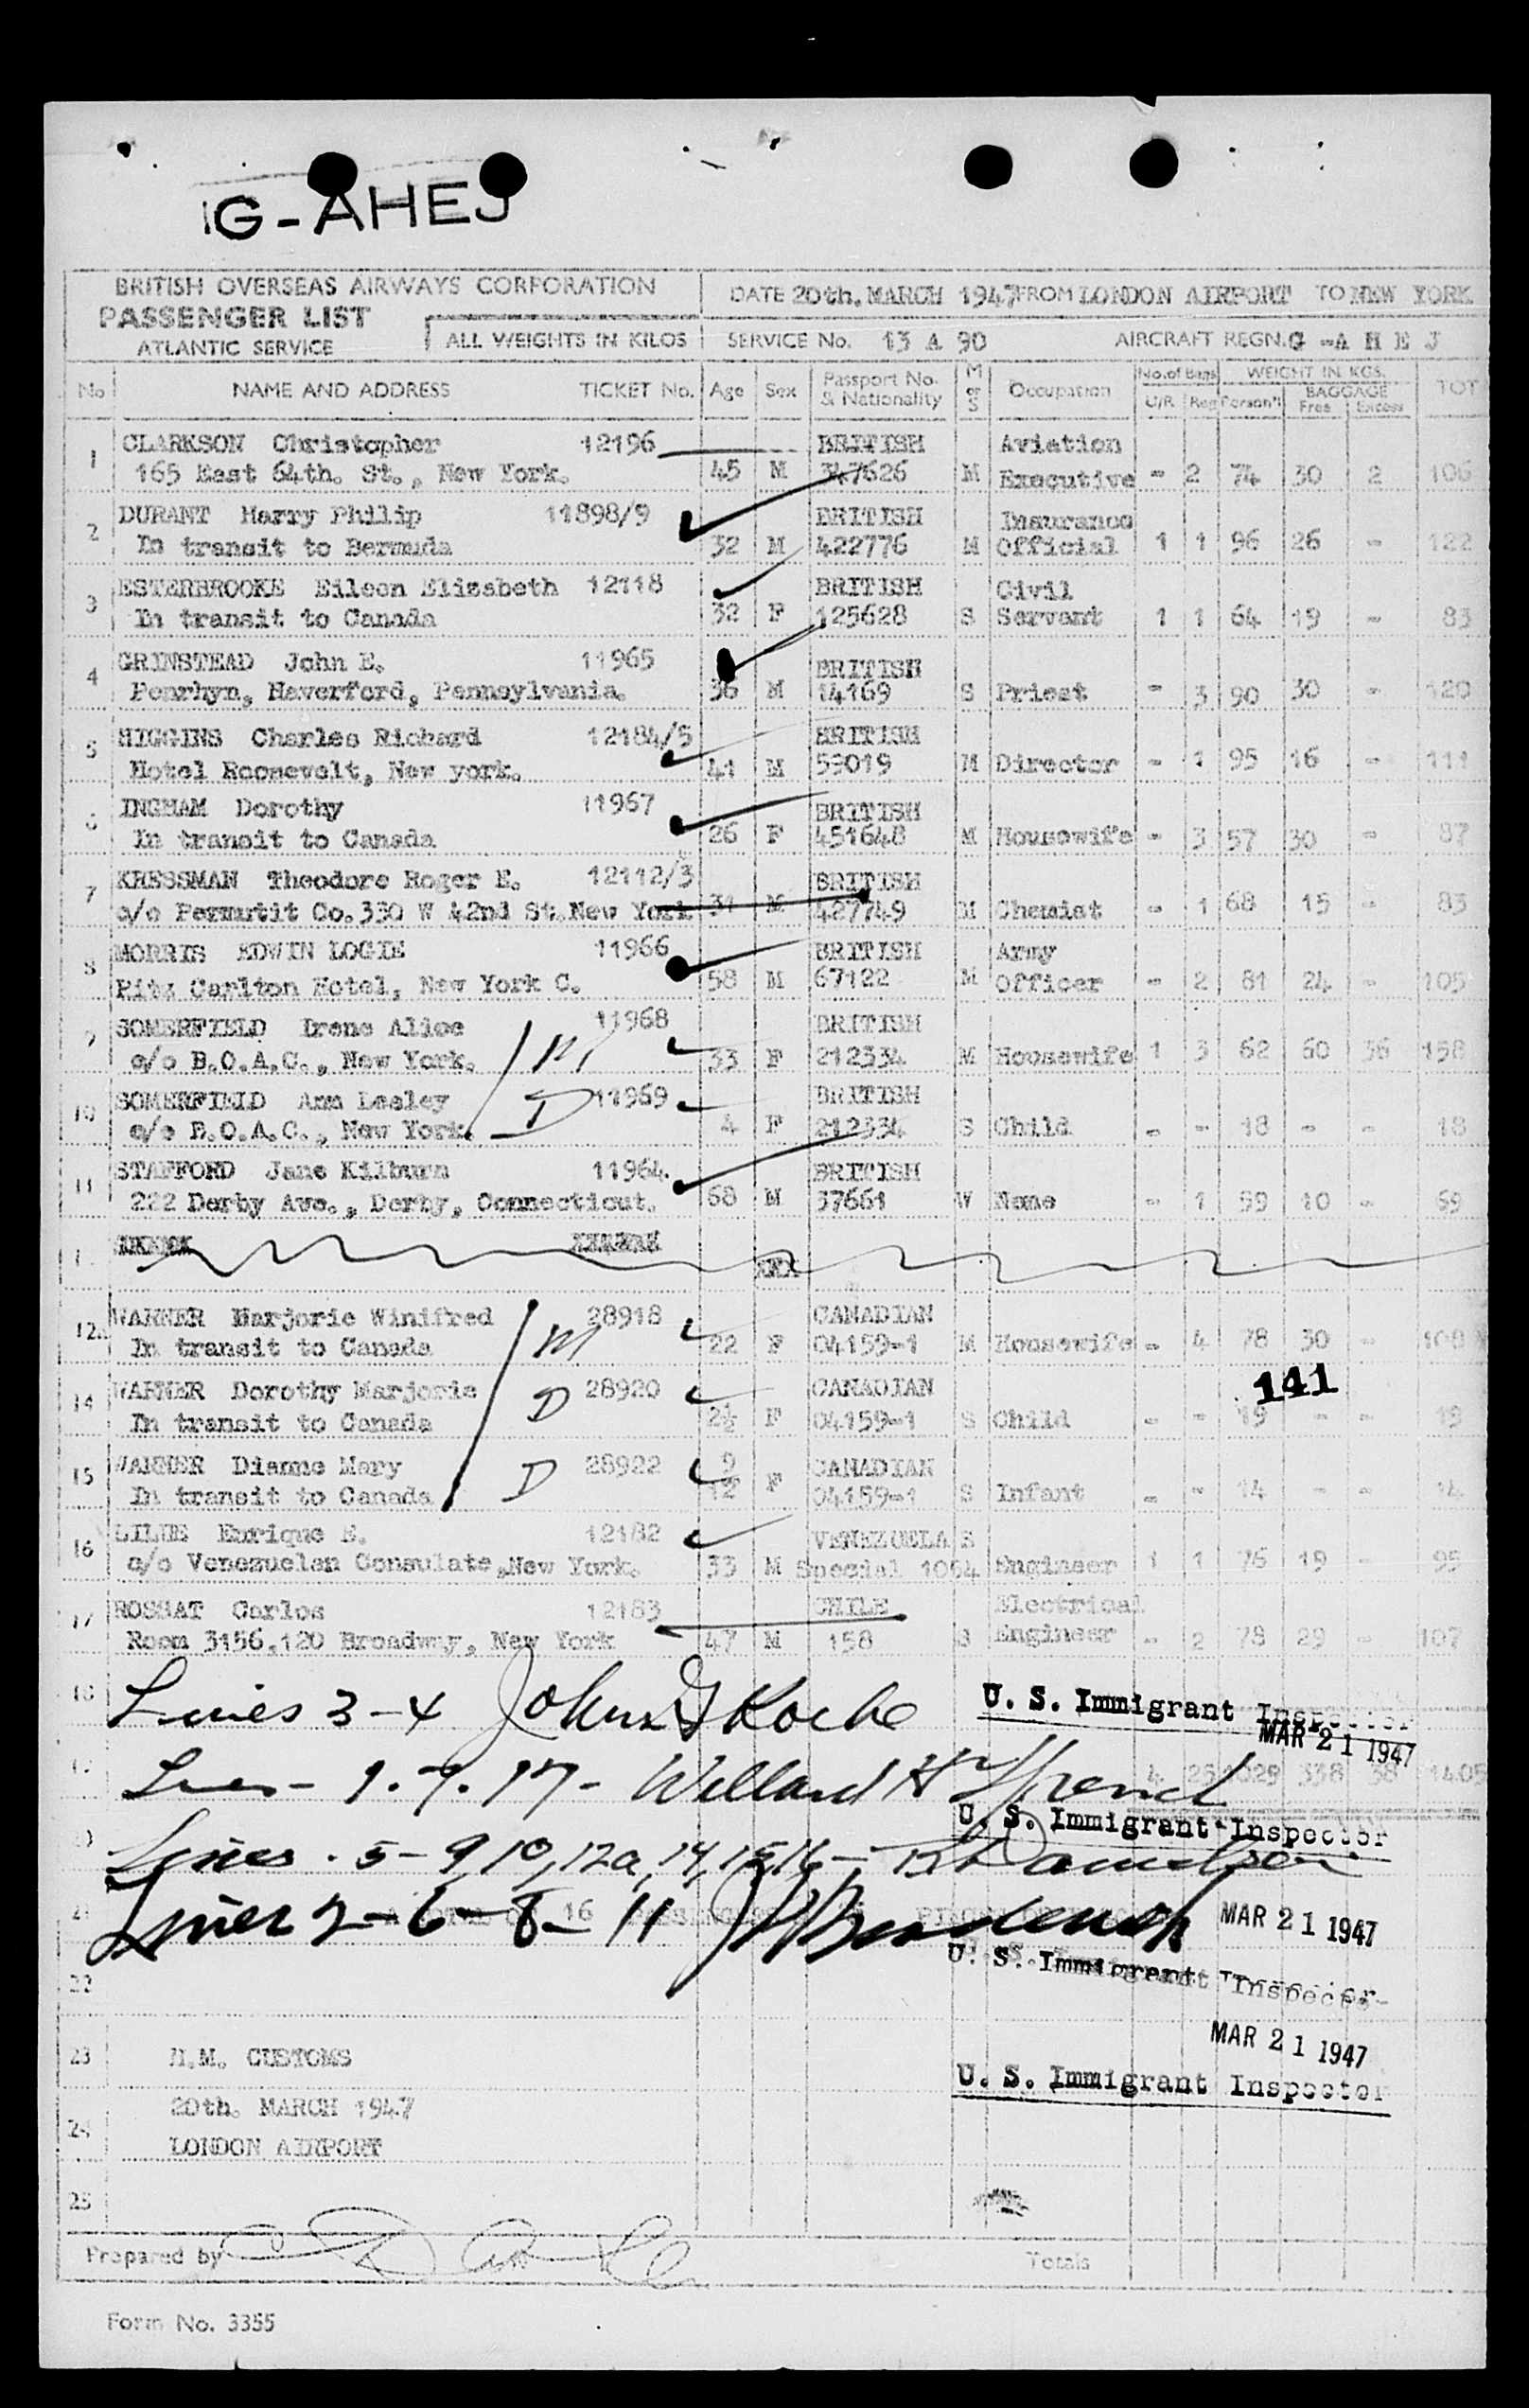 G-AHEJ
BRITISH OVERSEAS AIRWAYS CORPORATION
PASSENGER LIST
ATLANTIC SERVICE
ALL WEIGHTS IN KILOS
DATE 20th. MARCH 1947 FROM LONDON AIRPORT TO NEW YORK
SERVICE No. 13 A 90 AIRCRAFT REGN. G -A H E J
No NAME AND ADDRESS TICKET No. Age Sex Passport No. & Nationality M or S Occupation No. of Bags U/R Reg WEIGHT IN KGS. Person'l BAGGAGE Free Excess TOT
CLARKSON Christopher 12196 BRITISH Aviation
1 165 East 64th. St., New York. 45 M 347626 M Executive - 2 74 30 2 106
DURANT Harry Philip 11898/9 BRITISH Insurance
2 In transit to Bermuda 32 M 422776 M Official 1 1 96 26 - 122
ESTERBROOKE Eileen Elizabeth 12118 BRITISH Civil
3 In transit to Canada 32 F 125628 S Servant 1 1 64 19 - 83
GRINSTEAD John E. 11965 BRITISH
4 Penrhyn, Haverford, Pennsylvania. 36 M 14169 S Priest - 3 90 30 - 120
HIGGINS Charles Richard 12184/5 BRITISH
5 Hotel Roosevelt, New york. 41 M 59019 M Director - 1 95 16 - 111
INGHAM Dorothy 11967 BRITISH
6 In transit to Canada 26 F 451648 M Housewife - 3 57 30 - 87
KRESSMAN Theodore Roger E. 12112/3 BRITISH
7 c/o Permutit Co. 330 W 42nd St. New York 31 M 427749 M Chemist - 1 68 15 - 83
MORRIS EDWIN LOGIE 11966 BRITISH Army
8 Ritz Carlton Hotel, New York C. 58 M 67122 M Officer - 2 81 24 - 105
SOMERFIELD Irene Alice 11968 BRITISH
9 c/o B.O.A.C., New York. M 33 F 212334 M Housewife 1 3 62 60 36 158
SOMERFIELD Ann Lesley D 11969 BRITISH
10 c/o B.O.A.C., New York. 4 F 212334 S Child - - 18 - - 18
STAFFORD Jane Kilburn 11964. BRITISH
11 222 Derby Ave., Derby, Connecticut. 68 M 37661 W None - 1 59 10 - 69
WARNER Marjorie Winifred 28918 CANADIAN
12a In transit to Canada M 22 F 04159-1 M Housewife - 4 78 30 - 108
141
WARNER Dorothy Marjorie 28920 CANADIAN
14 In transit to Canada D 2½ F 04159-1 S Child - - 19 - - 19
WARNER Dianne Mary 28922 CANADIAN
15 In transit to Canada D 9/12 F 04159-1 S Infant - - 14 - - 14
LILUE Enrique E. 12182 VENEZUELA S
16 c/o Venezuelan Consulate, New York. 33 M Special 1064 Engineer 1 1 76 19 - 95
ROSSAT Carlos 12183 CHILE Electrical
17 Room 3156, 120 Broadway, New York 47 M 158 S Engineer - 2 78 29 - 107
18 Lines 3-4 John G Koche U. S. Immigrant Inspector
MAR 21 1947
Lines - 1. 7. 17 - Willard H 4 25 1029 338 38 1405
U. S. Immigrant Inspector
Lines . 5 - 9, 10, 12a, 14, 15, 16 -
21 Lines 2-6-8-11 16 MAR 21 1947
U. S. Immigrant Inspector
22
MAR 21 1947
23 H.M. CUSTOMS
U. S. Immigrant Inspector
20th. MARCH 1947
24
LONDON AIRPORT
25
Prepared by Totals
Form No. 3355